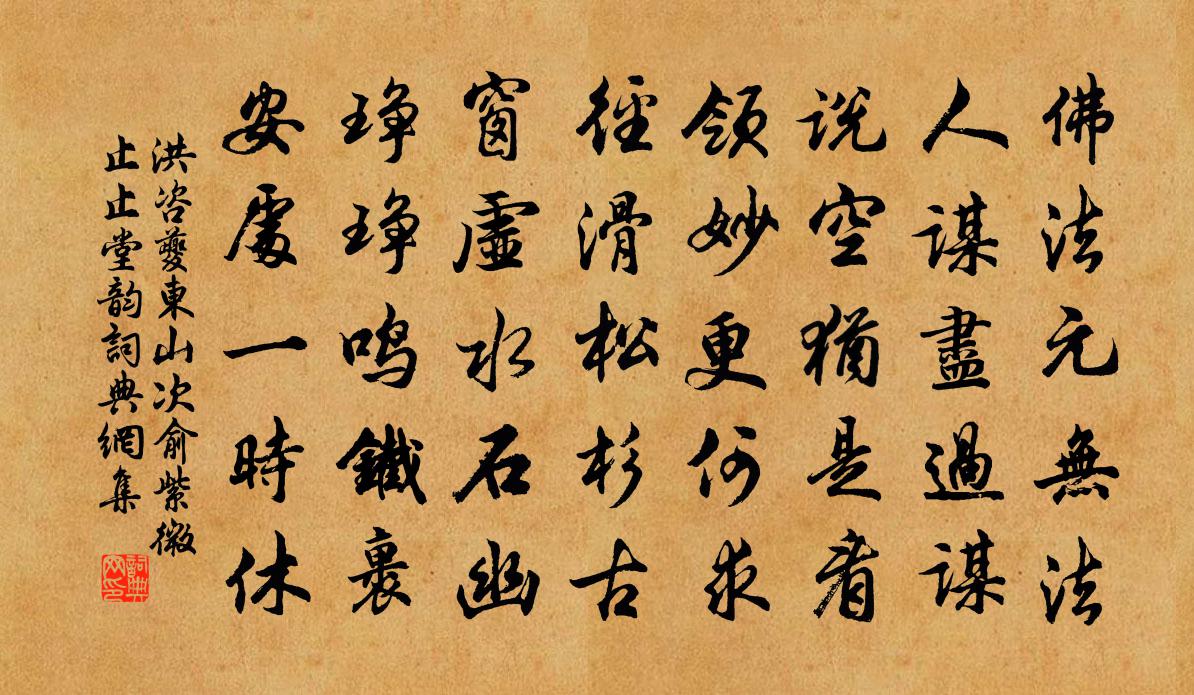 佛法元無法
人謀盡過謀
説空猶是着
領妙更何求
徑滑松杉古
窗虛水石幽
琤琤鳴鐵裏
安處一時休
洪咨夔東山次俞紫微
止止堂韵詞典網集
詞典网印